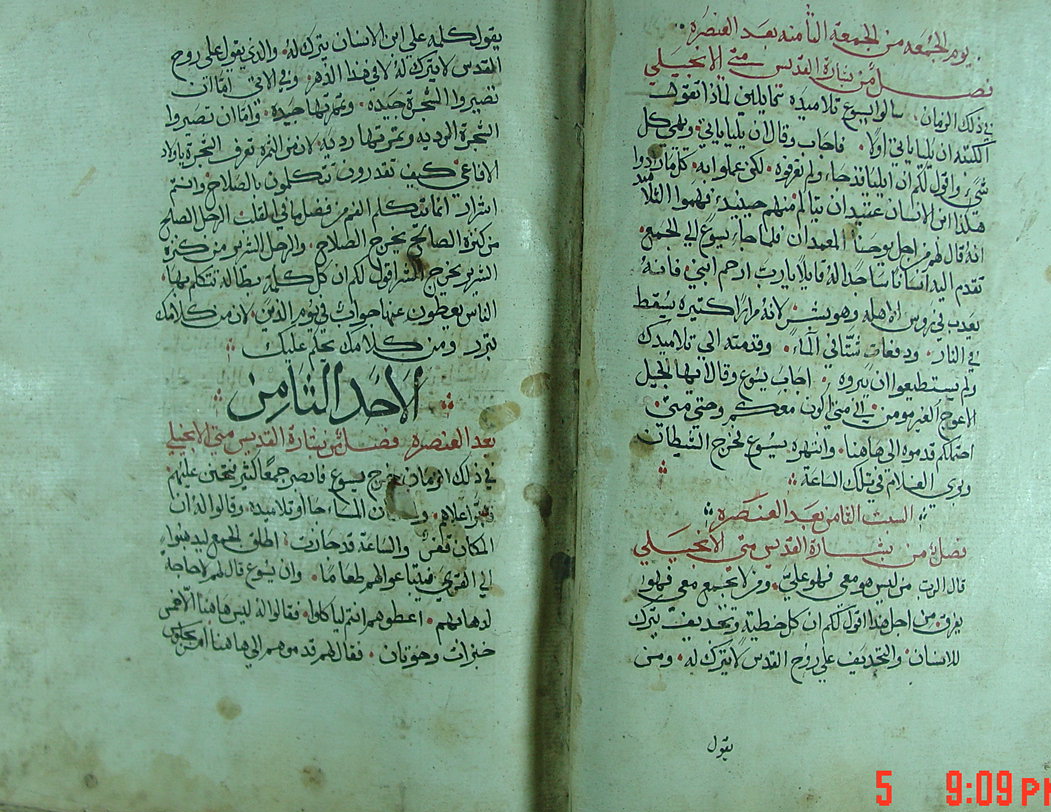 يوم الجمعه من الجمعة الثامنه بعد العنصره
فصل من بشارة القديس متي الانجيلي
في ذلك الزمان سالوا يسوع تلاميذه قايلين لماذا تقول
الكتبه ان ايليا ياتي اولاً فاجاب وقال ان ايليا ياتي وهي كل
شي واقول لكم ان ايليا قد جاء ولم تعرفوه لكن عملوا به كلما ارادوا
هكذا ابن الانسان عتيد ان يتالم منهم حينيذ فهموا التلاميذ
انه قال لهم من اجل يوحنا المعمدان فلما جاء يسوع الي الجمع
تقدم اليه انسانًا ساجدا له قايلا يارب ارحم ابني فانه
يعذب في روس الاهله وهو بشر لانه مرارًا كثيره يسقط
في النار ودفعات شتّا في الماء وقدمته الي تلاميذك
ولم يستطيعوا ان يبروه اجاب يسوع وقال ايها الجيل
الاعوج الغير مومن الي متي اكون معكم وحتي متي
احتملكم قدموه الي هاهنا وانتهره يسوع فخرج الشيطان
وبري الغلام في تلك الساعة
السبت الثامن بعد العنصره
فصل من بشارة القديس متي الانجيلي
قال الرب من ليس هو معي فهو عليّ ومن لا يجمع معي فهو
يفرق من اجل هذا اقول لكم ان كل خطية وتجديف يترك
للانسان والتجديف علي روح القدس لا يترك له ومن
يقول
يقول كلمه علي ابن الانسان يترك له والذي يقول علي روح
القدس لا يترك له لا في هذا الدهر ولا في الاتي اما ان
تصيروا الشجرة جيده وثمرتها جيده واما ان تصيروا
الشجرة الرديه وثمرتها رديه لان من الثمرة تعرف الشجرة ياولاد
الافاعي كيف تقدرون تتكلمون بالصلاح وانتم
اشرار انما يتكلم الفم من فضل ما في القلب الرجل الصالح
من كنزه الصالح يخرج الصلاح والرجل الشرير من كنزه
الشرير يخرج الشر اقول لكم ان كل كلمه بطالة تتكلم بها
الناس يعطون عنها جواب في يوم الدين لان من كلامك
تبرر ومن كلامك يحكم عليك
الاحد الثامن
بعد العنصره فصل من بشارة القديس متي الانجيلي
في ذلك الزمان خرج يسوع فابصر جمعًا كثير فتحنن عليهم
اعلاهم كان المساء جاأو تلاميذه وقالوا له ان
المكان قفر والساعة قد جازت اطلق الجمع ليذهبوا
الي القري فيبتاعوا لهم طعامًا وان يسوع قال لهم لا حاجة
لذهابهم اعطوهم انتم لياكلوا فقالوا له ليس هاهنا الا خمس
خبزات وحوتان فقال لهم قدموهم الي هاهنا